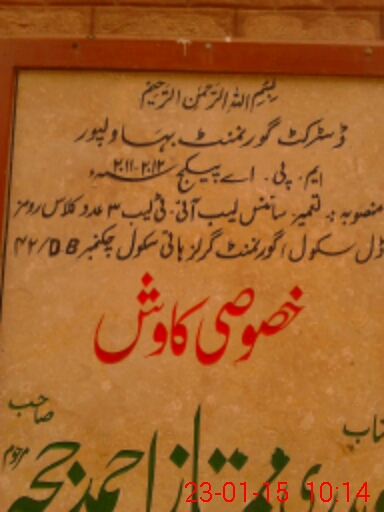 بسم اللہ الرحمٰن الرحیم
ڈسٹرکٹ گورنمنٹ بہاولپور
ایم۔پی۔اے پیکج ۲۰۱۲-۲۰۱۱ء
منصوبہ:۔ تعمیر سائنس لیب آئی۔ٹی لیب ۳ عدد کلاس رومز
ڈل سکول/گورنمنٹ گرلز ہائی سکول چکنمبر 42/DB
خصوصی کاوش
صاحب
ممتاز احمد ججہ مرحوم
23-01-15 10:14